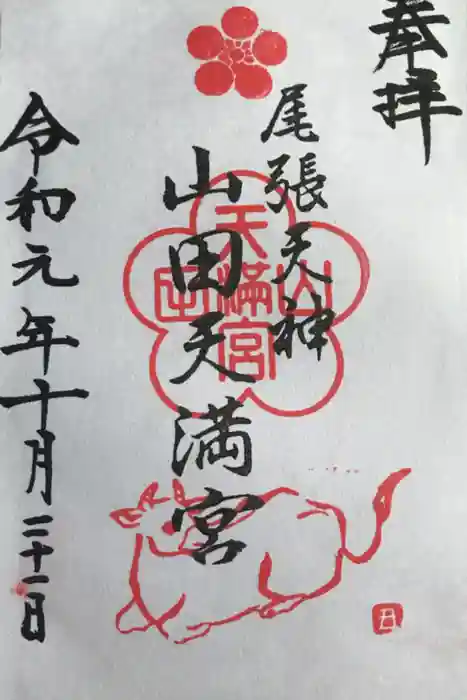 奉拝
尾張天神
山田天満宮
山田
天満宮
令和元年十月二十一日